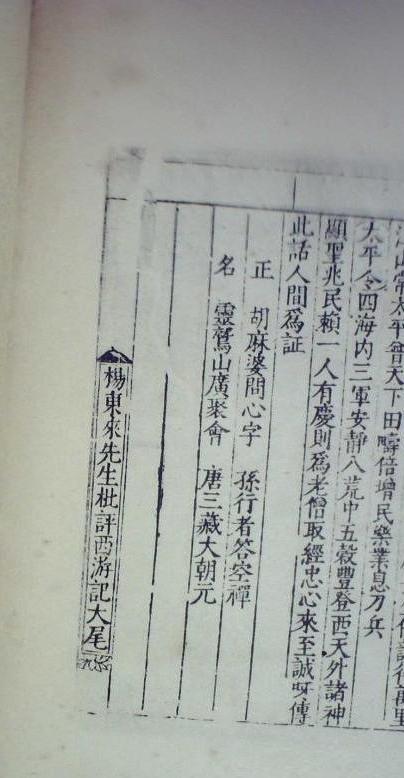 山常太平曾天下田疇倍增民樂業息刀兵
太平令四海内三軍安靜八荒中五穀豐登西天外諸神
顯聖兆民賴一人有慶則爲老僧取經忠心來至誠呀傳
此話人間爲証
正 胡麻婆問心字 孫行者答空禪
名 靈鷲山廣聚會 唐三藏大朝元
楊東來先生批評西游記大尾